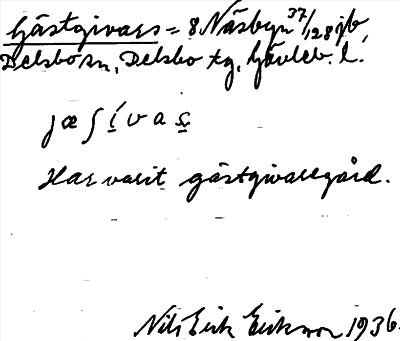 Gästgivars = 8 Näsbyn 37/128 jb,
Delsbo sn, Delsbo tg, Gävleb. l.
jæʃi̲vas̲
Har varit gästgivaregård.
Nils Erik Erikson 1936.